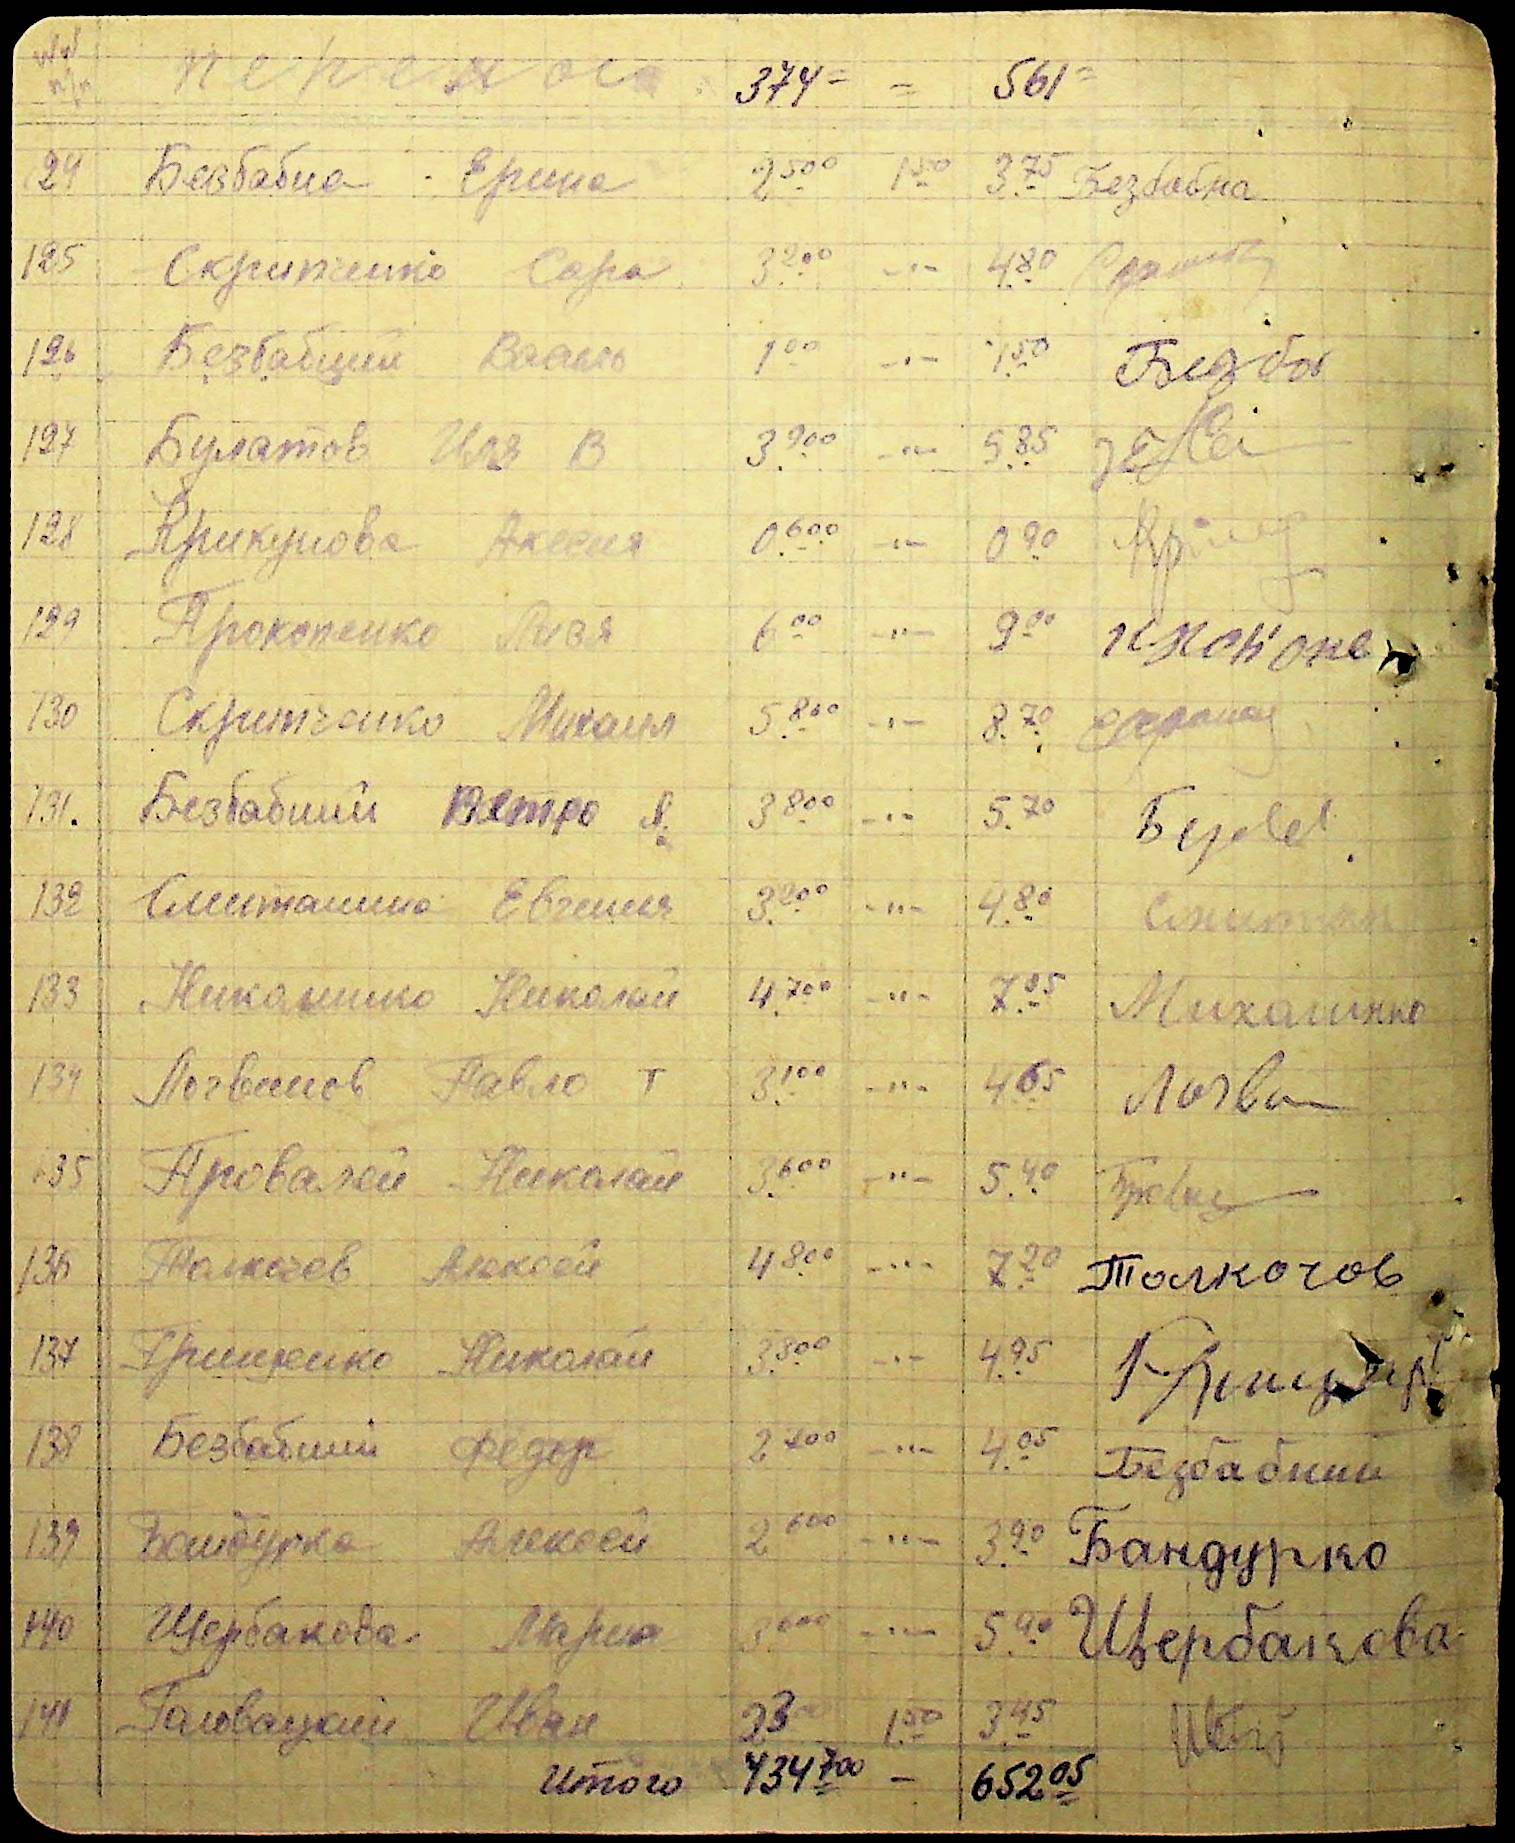 №№ п/п перенос 374= = 561=
124 Безбабна Ерина 2.500 1.50 3.75 Безбабна
125 Скрипченко Сара 3.200 -"- 4.80
126 Безбабций 1.00 -"- 1.50 Безба
127 Булатов Иля В 3.900 -"- 5.85
128 Крикунова Аксеня 0.600 -"- 0.90
129 Прокопенко Лизя 6.00 -"- 9.00
130 Скрипченко Михаил 5.800 -"- 8.70
131. Безбабний Петро Я. 3.800 -"- 5.70
132 Смитанина Евгения 3.200 -"- 4.80
133 Николай 4.700 -"- 7.05
134 Логвинов Павло Т 3.100 -"- 4.65 Логви
135 Провалей Николай 3.600 -"- 5.40
136 Толкачев Алексей 4.800 -"- 7.20 Толкочов
137 Грищенко Николай 3.300 -"- 4.95
138 Безбабний Федор 2.700 -"- 4.05 Безбабний
139 Бандурка Алексей 2.600 -"- 3.90 Бандурко
140 Щербакова Мария 3.600 -"- 5.40 Щербакова
141 Головацкий Иван 2.300 1.50 3.45
Итого 434.700 - 652.05